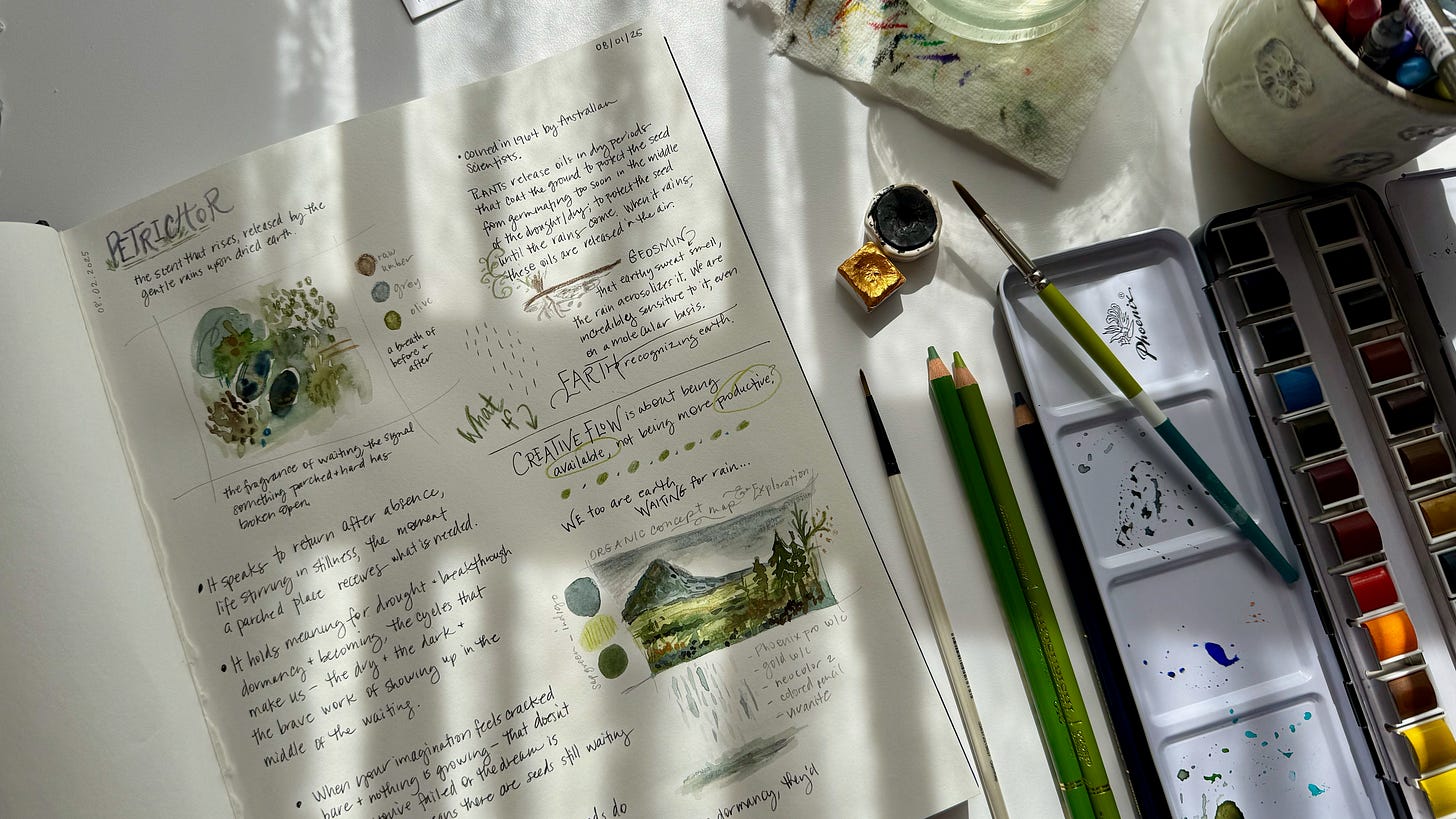 08.02.2025
PETRICHOR
the scent that rises, released by the
gentle rains upon dried earth.
raw
umber
grey
olive
a breath of
before +
after
the fragrance of waiting, the signal
something parched + hard has
broken open.
• It speaks to return after absence,
life stirring in stillness, the moment
a parched place receives what is needed.
• It holds meaning for drought + breakthrough
dormancy + becoming, the cycles that
make us – the dry + the dark +
the brave work of showing up in the
middle of the waiting.
• When your imagination feels cracked
bare + nothing is growing – that doesn't
you've failed or the dream is
means there are seeds still waiting
08/01/25
• coined in 1964 by Australian
scientists.
PLANTS release oils in dry periods
that coat the ground to protect the seed
from germinating too soon in the middle
of the drought/dry; to protect the seed
until the rains come. When it rains,
these oils are released in the air.
GEOSMIN
that earthy sweat smell,
the rain aerosolizes it. We are
incredibly sensitive to it, even
on a molecular basis.
EARTH recognizing earth.
What
if
CREATIVE FLOW is about being
available, not being more productive?
WE too are earth
WAITING for rain...
ORGANIC concept map Exploration
indigo
sap green
- Phoenix pro w/c
- gold w/c
- neocolor 2
- colored pencil
- vivanite
ds do
dormancy, they'd
Phoenix